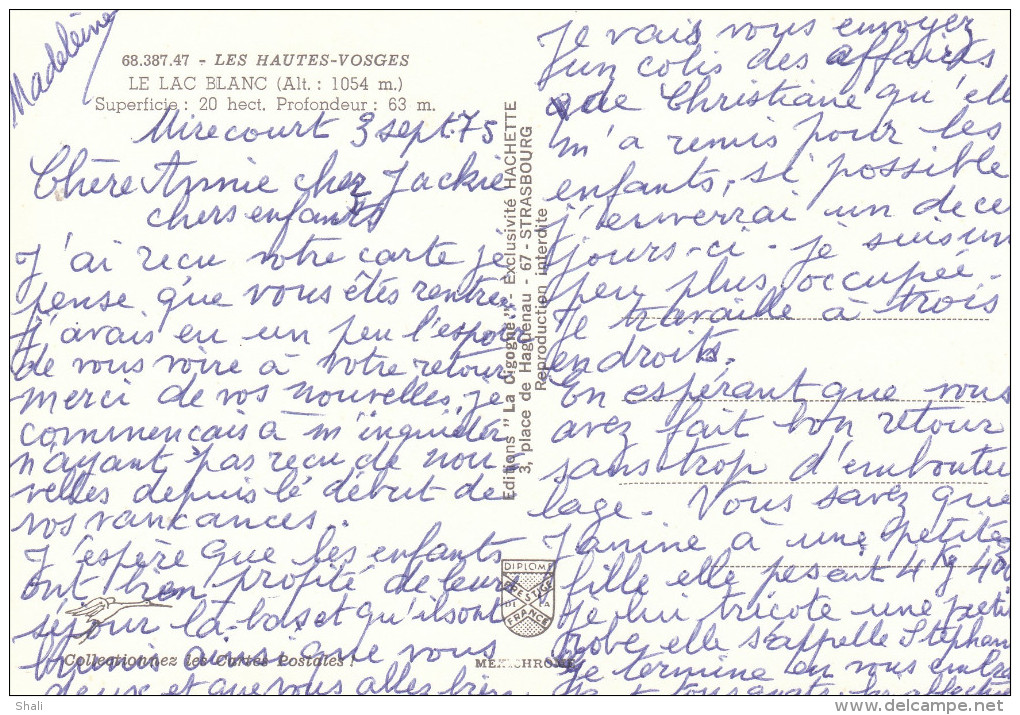 Madeleine
68.387.47 - LES HAUTES-VOSGES
LE LAC BLANC (Alt. : 1054 m.)
Superficie : 20 hect. Profondeur : 63 m.
Mirecourt 3 sept. 75
Chère Annie cher Jackie
chers enfants
J'ai reçu votre carte je
pense que vous êtes rentrés
j'avais eu un peu l'espoir
de vous voire à votre retour
merci de vos nouvelles, je
commençais à m'inquiéter
n'ayant pas reçu de nou-
velles depuis le début de
vos vancances.
J'espère que les enfants
ont bien profité de leur
séjour là-bas et qu'ils ont
bruni ainsi que vous
deux et que vous allez bien
Collectionnez les Cartes Postales !
Editions "La Cigogne" - Exclusivité HACHETTE
3, place de Haguenau - 67 - STRASBOURG
Reproduction interdite
DIPLOME
PRESTIGE
DE LA
FRANCE
MEXICHROME
Je vais vous envoyez
un colis des affaires
que Christiane qu'elle
m'a remis pour les
enfants, si possible
j'enverrai un de ces
jours-ci - je suis un
peu plus occupée -
Je travaille à trois
endroits.
En espérant que vous
avez fait bon retour
sans trop d'embouteil
lage - Vous savez que
Janine à une petite
fille elle pesait 4 Kg 400
je lui tricote une petite
robe, elle s'appelle Stéphanie
Je termine en vous embra
Shali
www.delcampe.net